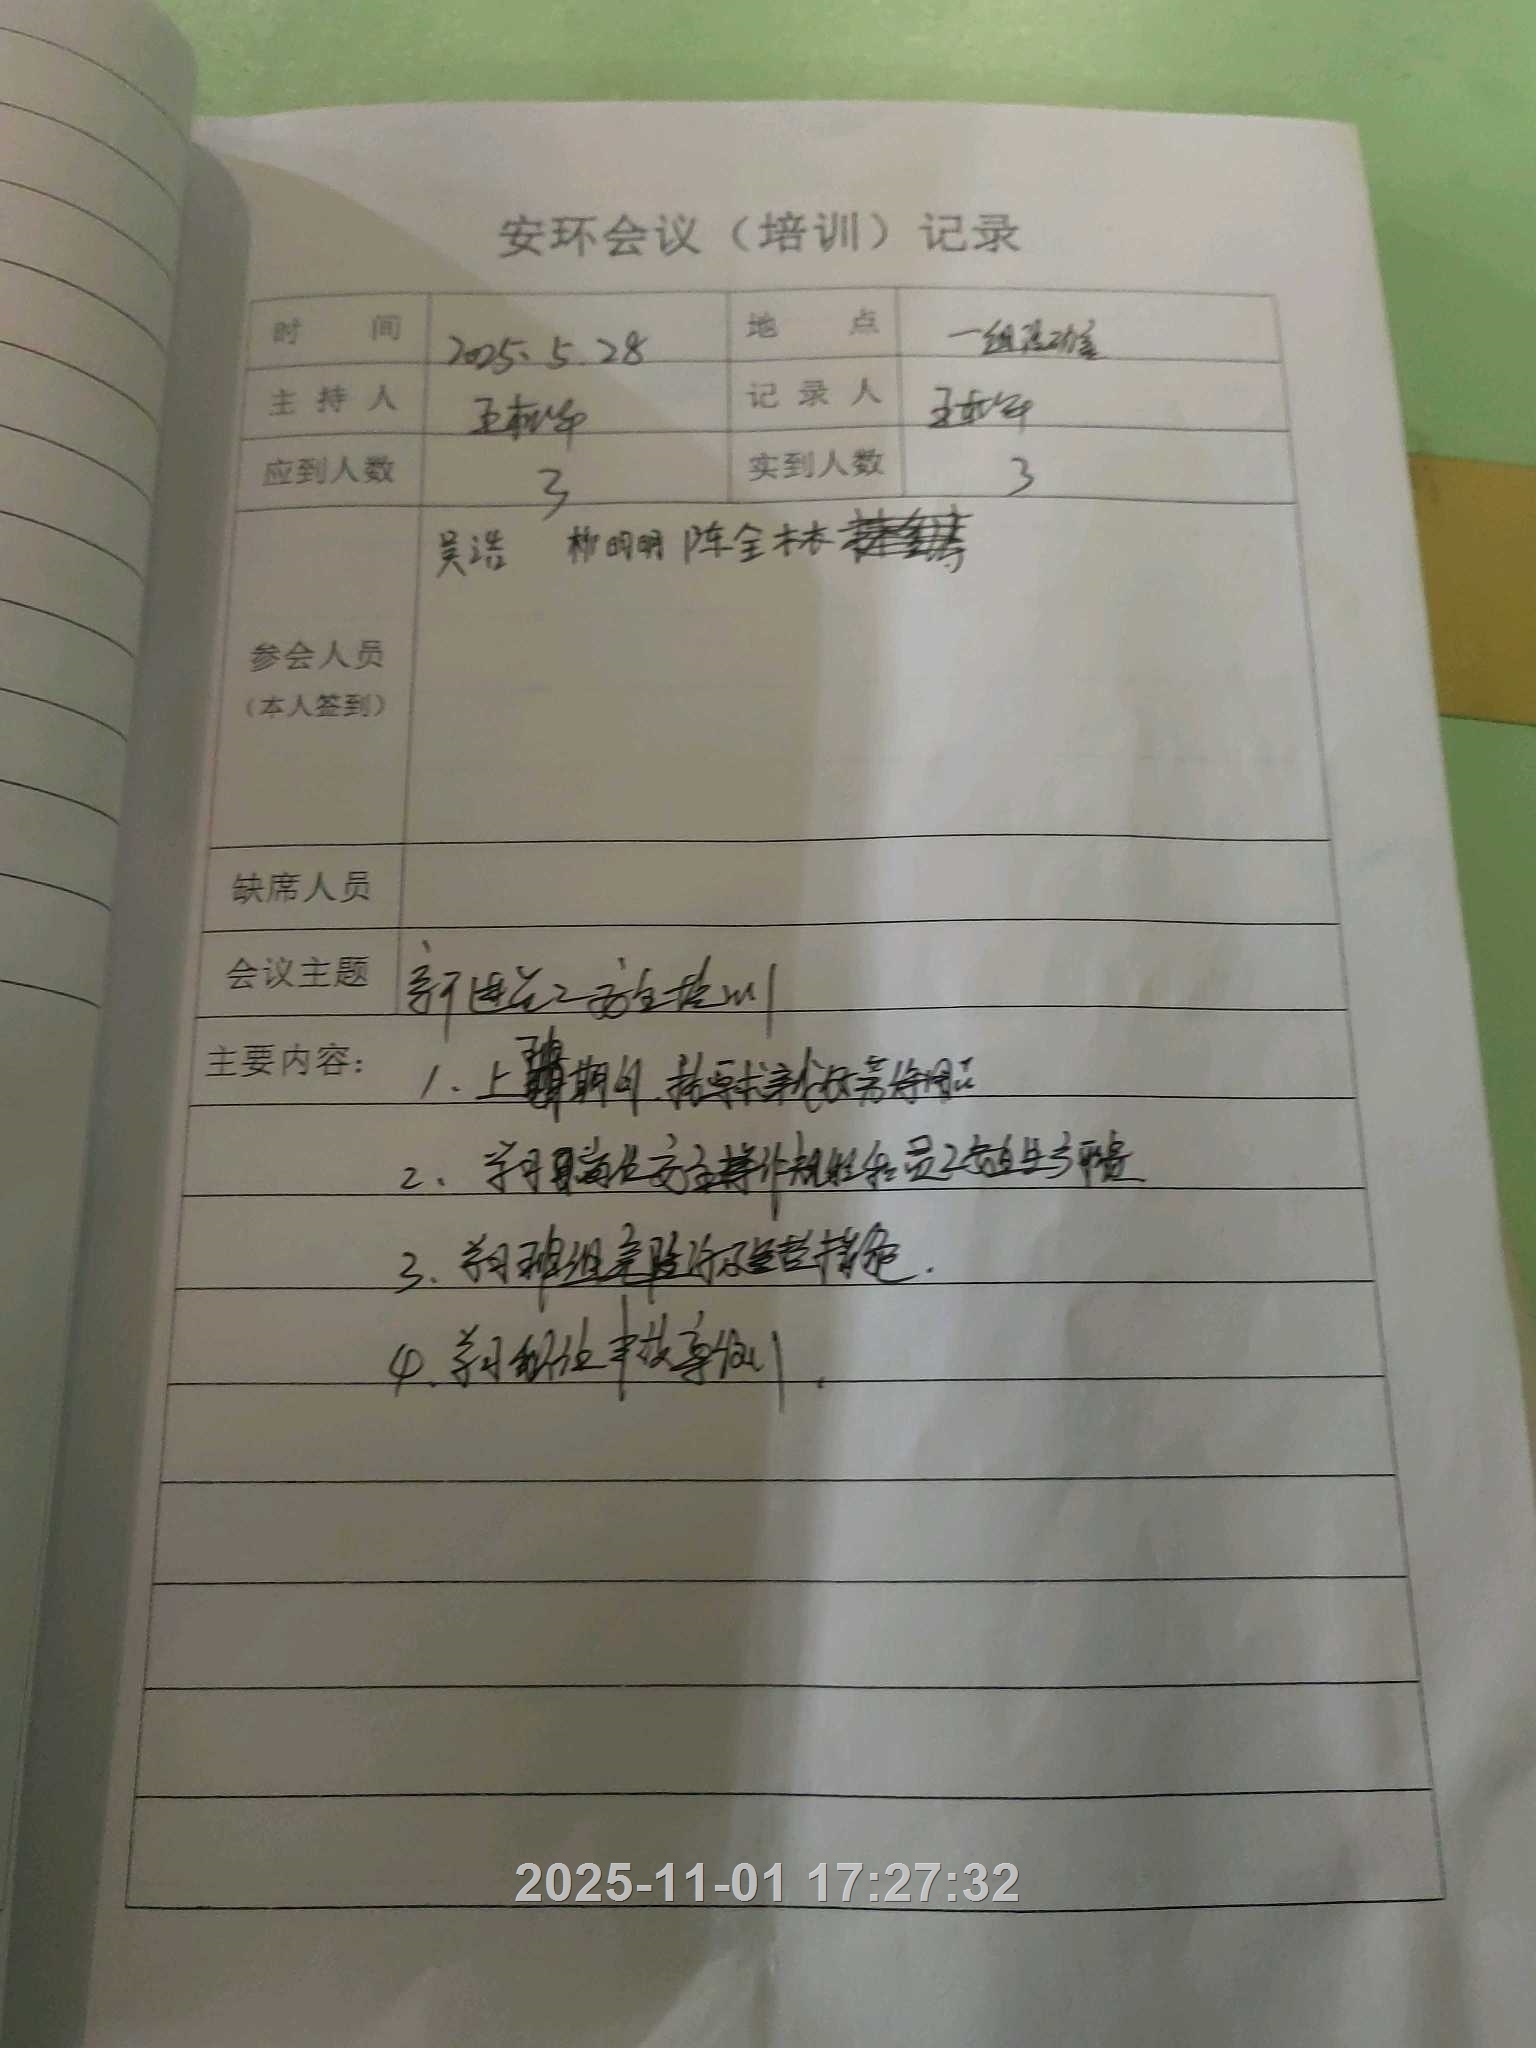 安环会议（培训）记录
时 间 2025.5.28 地 点 一组活动室
主 持 人 王 记 录 人 王
应到人数 3 实到人数 3
吴浩 柳明明 陈全林
参会人员
（本人签到）
缺席人员
会议主题 新进员工安全培训
主要内容： 1. 上班期间.按要求穿戴好劳保用品
2. 学习岗位安全操作规程和员工安全
3. 学习班组
4. 学习 事故案例.
2025-11-01 17:27:32